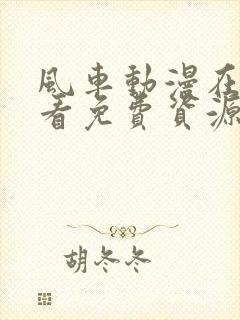 風車動漫在
看免費資源
胡冬冬